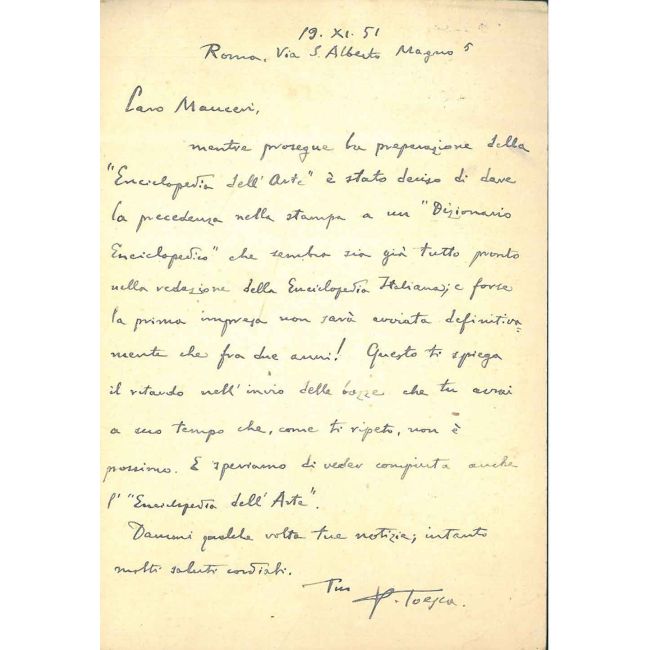 19. XI. 51
Roma. Via S. Alberto Magno 5
Caro Mauceri,
mentre prosegue la preparazione della
"Enciclopedia dell'Arte" è stato deciso di dare
la precedenza nella stampa a un "Dizionario
Enciclopedico" che sembra sia già tutto pronto
nella redazione della Enciclopedia Italiana; e forse
la prima impresa non sarà avviata definitiva=
mente che fra due anni! Questo ti spiega
il ritardo nell'invio delle bozze che tu avrai
a suo tempo che, come ti ripeto, non è
prossimo. E speriamo di veder compiuta anche
l' "Enciclopedia dell'Arte".
Dammi qualche volta tue notizie; intanto
molti saluti cordiali.
Tuo
P. Toesca.